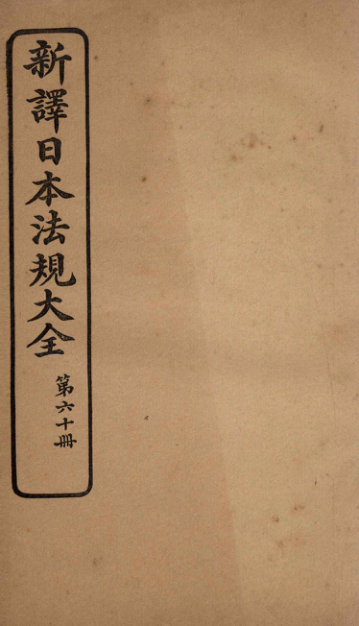 新譯日本法規大全
第六十冊